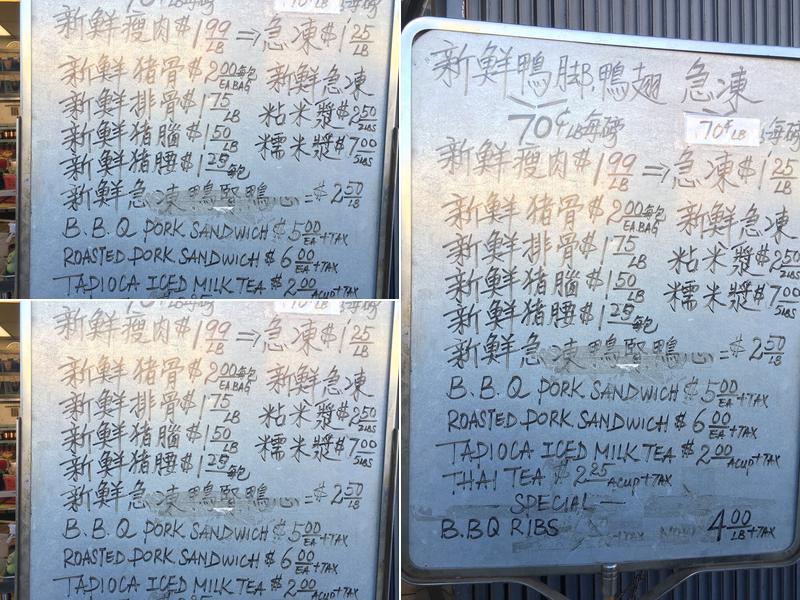 新鮮瘦肉$1.99 LB ⇒急凍$1.25 LB
新鮮猪骨$2.00每包 EA.BAG 新鮮急凍
新鮮排骨$1.75 LB 粘米漿$2.50 5LBS
新鮮猪腦$1.50 LB 糯米漿$7.00 5LBS
新鮮猪腰$1.25每包
新鮮急凍鴨腎鴨心=$2.50 LB
B.B.Q PORK SANDWICH $5.00 EA+TAX
ROASTED PORK SANDWICH $6.00 EA+TAX
TAPIOCA ICED MILK TEA $2.00 A CUP+TAX
新鮮瘦肉$1.99 LB ⇒急凍$1.25 LB
新鮮猪骨$2.00每包 EA.BAG 新鮮急凍
新鮮排骨$1.75 LB 粘米漿$2.50 5LBS
新鮮猪腦$1.50 LB 糯米漿$7.00 5LBS
新鮮猪腰$1.25每包
新鮮急凍鴨腎鴨心=$2.50 LB
B.B.Q PORK SANDWICH $5.00 EA+TAX
ROASTED PORK SANDWICH $6.00 EA+TAX
TAPIOCA ICED MILK TEA $2.00 A CUP+TAX
新鮮鴨脚,鴨翅 急凍
70¢LB每磅 70¢LB每磅
新鮮瘦肉$1.99 LB ⇒急凍$1.25 LB
新鮮猪骨$2.00每包 EA.BAG 新鮮急凍
新鮮排骨$1.75 LB 粘米漿$2.50 5LBS
新鮮猪腦$1.50 LB 糯米漿$7.00 5LBS
新鮮猪腰$1.25每包
新鮮急凍鴨腎鴨心=$2.50 LB
B.B.Q PORK SANDWICH $5.00 EA+TAX
ROASTED PORK SANDWICH $6.00 EA+TAX
TAPIOCA ICED MILK TEA $2.00 A CUP+TAX
THAI TEA $2.25 A CUP+TAX
— SPECIAL —
B.B.Q RIBS 4.00 LB+TAX